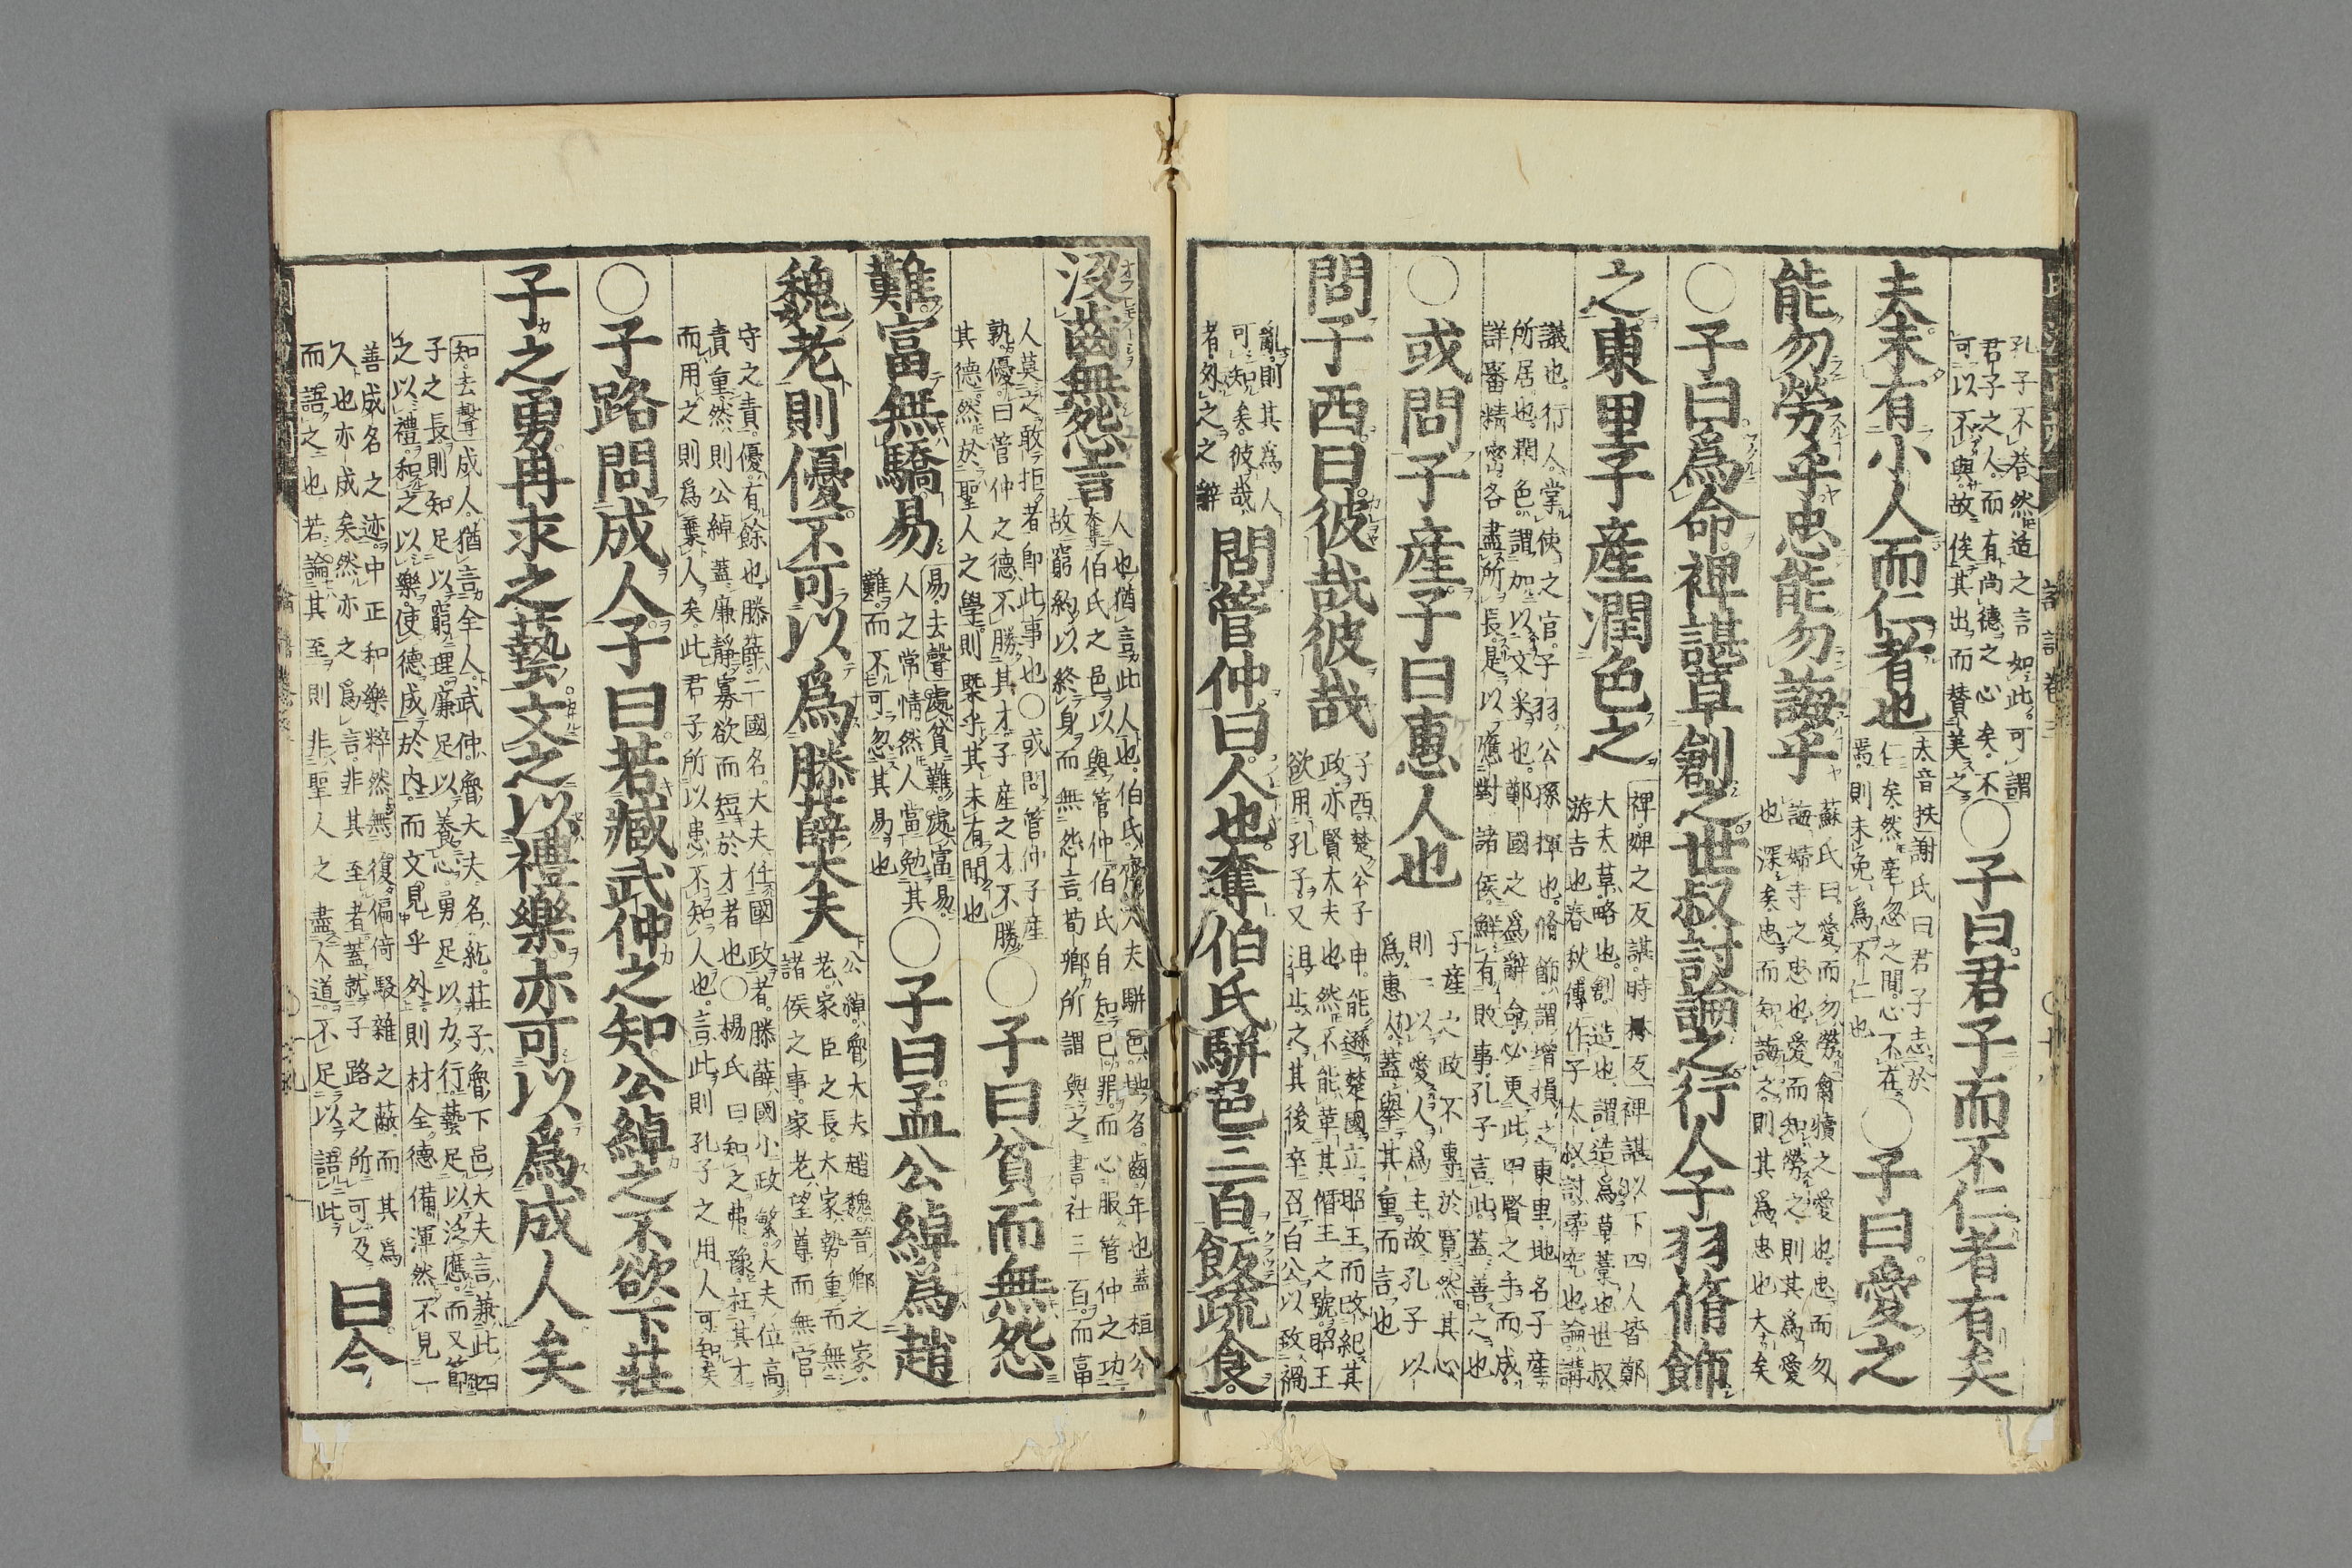 孔子不荅然造之言如此可謂
君子之人而有尚德之心矣不
可以不與故俟其出而賛美之
○子曰君子而不仁者有矣
夫未有小人而仁者也
夫音扶謝氏曰君子志於
仁矣然毫忽之間心不在
焉則未免爲不仁也
○子曰愛之
能勿勞乎忠焉能勿誨乎
蘇氏曰愛而勿勞禽犢之愛也忠而勿
誨婦寺之忠也愛而知勞之則其爲愛
也深矣忠而知誨之則其爲忠也大矣
○子曰爲命裨諶草創之世叔討論之行人子羽脩飾
之東里子產潤色之
裨婢之反諶時林反裨諶以下四人皆鄭
大夫草略也創造也謂造爲草藁也世叔
游吉也春秋傳作子太叔討尋究也論講
議也行人掌使之官子羽公孫揮也脩飾謂增損之東里地名子產
所居也潤色謂加以文采也鄭國之爲辭命必更此四賢之手而成
詳審精密各盡所長是以應對諸侯鮮有敗事孔子言此蓋善之也
○或問子產子曰惠人也
子產之政不專於寛然其心
則一以愛人爲主故孔子以
爲惠人蓋舉其重而言也
問子西曰彼哉彼哉
子西楚公子申能遜楚國立昭王而改紀其
政亦賢大夫也然不能革其僭王之號昭王
欲用孔子又沮止之其後卒召白公以致禍
亂則其爲人
可知矣彼哉
者外之之辭
問管仲曰人也奪伯氏駢邑三百飯疏食
沒齒無怨言
人也猶言此人也伯氏齊大夫駢邑地名齒年也蓋桓公
奪伯氏之邑以與管仲伯氏自知己罪而心服管仲之功
故窮約以終身而無怨言荀卿所謂與之書社三百而富
人莫之敢拒者即此事也○或問管仲子產
孰優曰管仲之德不勝其才子產之才不勝
其德然於聖人之學則槩乎其未有聞也
○子曰貧而無怨
難富無驕易
易去聲處貧難處富易
人之常情然人當勉其
難而不可忽其易也
○子曰孟公綽爲趙
魏老則優不可以爲滕薛大夫
公綽魯大夫趙魏晉卿之家
老家臣之長大家勢重而無
諸侯之事家老望尊而無官
守之責優有餘也滕薛二國名大夫任國政者滕薛國小政繁大夫位高
責重然則公綽蓋廉靜寡欲而短於才者也○楊氏曰知之弗豫枉其才
而用之則爲棄人矣此君子所以患不知人也言此則孔子之用人可知矣
○子路問成人子曰若臧武仲之知公綽之不欲卞莊
子之勇冉求之藝文之以禮樂亦可以爲成人矣
知去聲成人猶言全人武仲魯大夫名紇莊子魯卞邑大夫言兼此四
子之長則知足以窮理廉足以養心勇足以力行藝足以泛應而又節
之以禮和之以樂使德成於内而文見乎外則材全德備渾然不見一
善成名之迹中正和樂粹然無復偏倚駁雜之蔽而其爲
人也亦成矣然亦之爲言非其至者蓋就子路之所可及
而語之也若論其至則非聖人之盡人道不足以語此
曰今